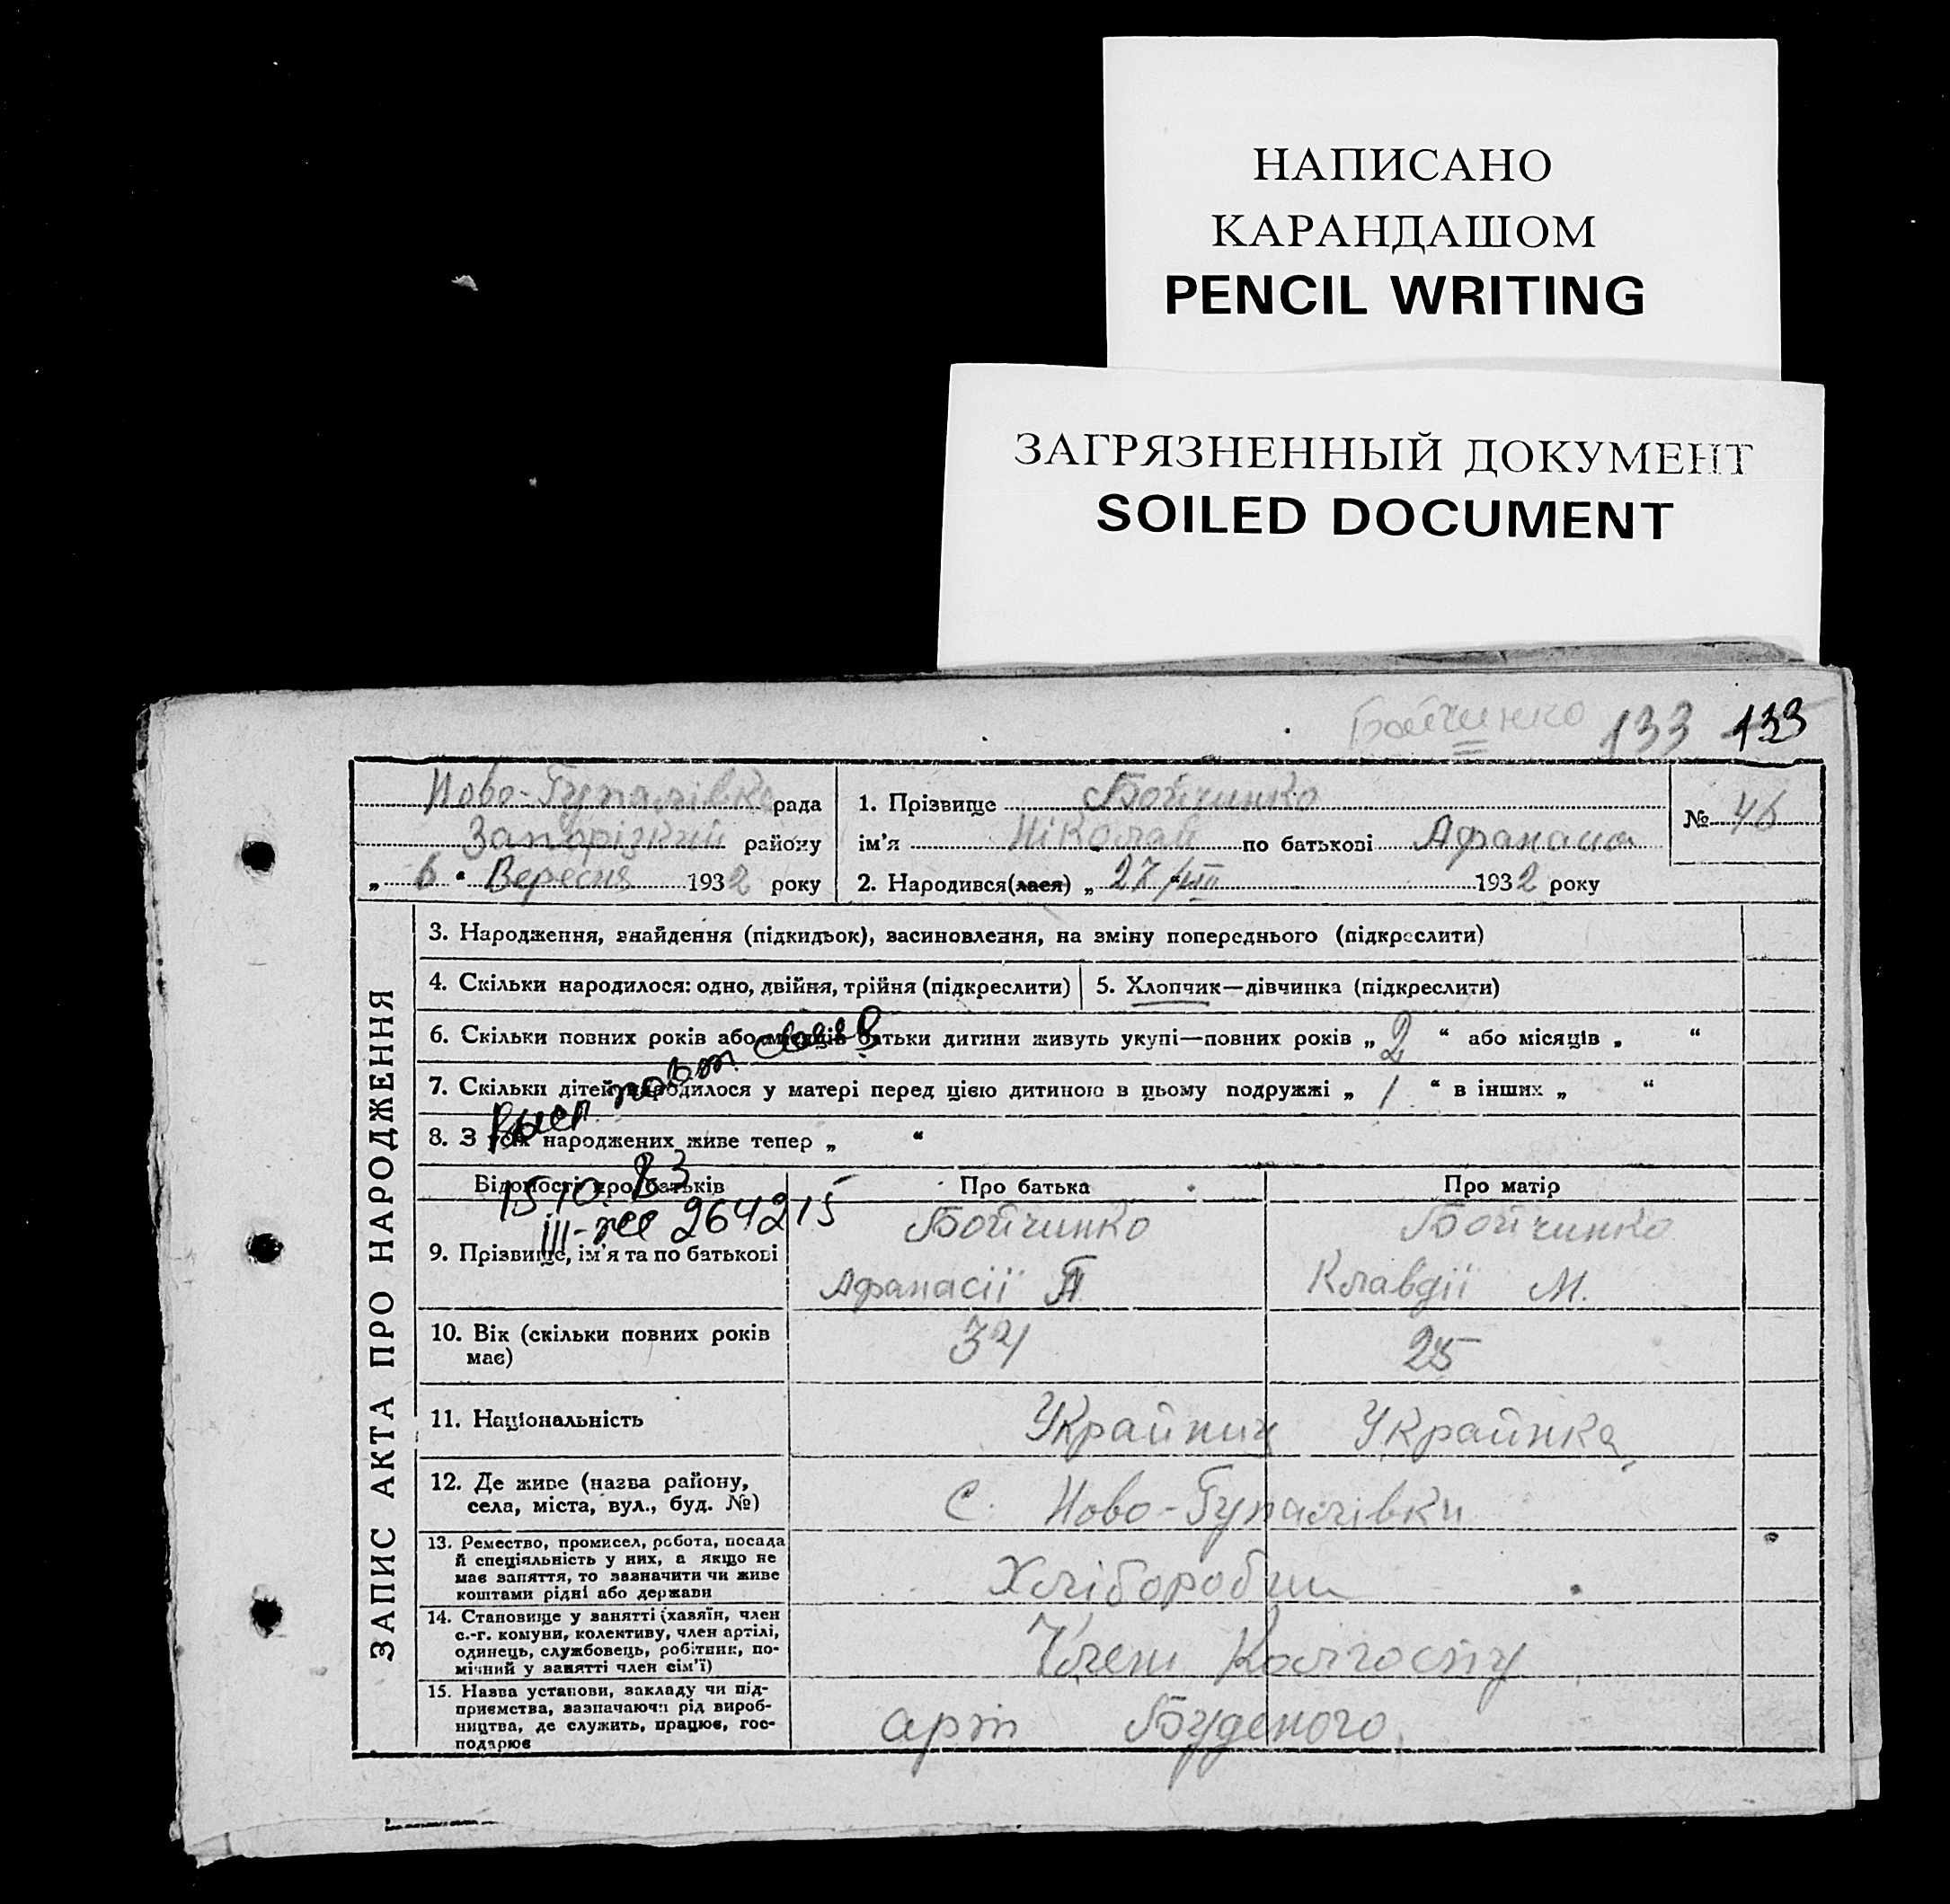 НАПИСАНО
КАРАНДАШОМ
PENCIL WRITING
ЗАГРЯЗНЕННЫЙ ДОКУМЕНТ
SOILED DOCUMENT
Бойчинко 133 133
Ново-Гупалівка рада
Запорізкий району
„ 6 " Вересня 1932 року
1. Прізвище Бойчинко
ім'я Ніколай по батькові Афанасов
2. Народився(лася) „ 27/VIII 1932 року
№ 46
ЗАПИС АКТА ПРО НАРОДЖЕННЯ
3. Народження, знайдення (підкидьок), засиновлення, на зміну попереднього (підкреслити)
4. Скільки народилося: одно, двійня, трійня (підкреслити)
5. Хлопчик—дівчинка (підкреслити)
6. Скільки повних років або місяців батьки дитини живуть укупі—повних років „ 2 “ або місяців „ “
7. Скільки дітей народилося у матері перед цією дитиною в цьому подружжі „ 1 “ в інших „ “
8. З усіх народжених живе тепер „ “
повт.
15 10 83
III-же 264215
Відомості про батьків
Про батька
Про матір
9. Прізвище, ім'я та по батькові
Бойчинко
Афанасії П
Бойчинко
Клавдії М.
10. Вік (скільки повних років
має)
34
25
11. Національність
Украйниц
Украйнка
12. Де живе (назва району,
села, міста, вул., буд. №)
с. Ново-Гупалівки
13. Ремество, промисел, робота, посада
й спеціяльність у них, а якщо не
має заняття, то зазначити чи живе
коштами рідні або держави
Хлібороби
14. Становище у занятті (хазяїн, член
с.-г. комуни, колективу, член артілі,
одинець, службовець, робітник, по-
мічний у занятті член сім'ї)
Члени Колгоспу
15. Назва установи, закладу чи під-
приємства, зазначаючи рід вироб-
ництва, де служить, працює, гос-
подарює
арт Буденого